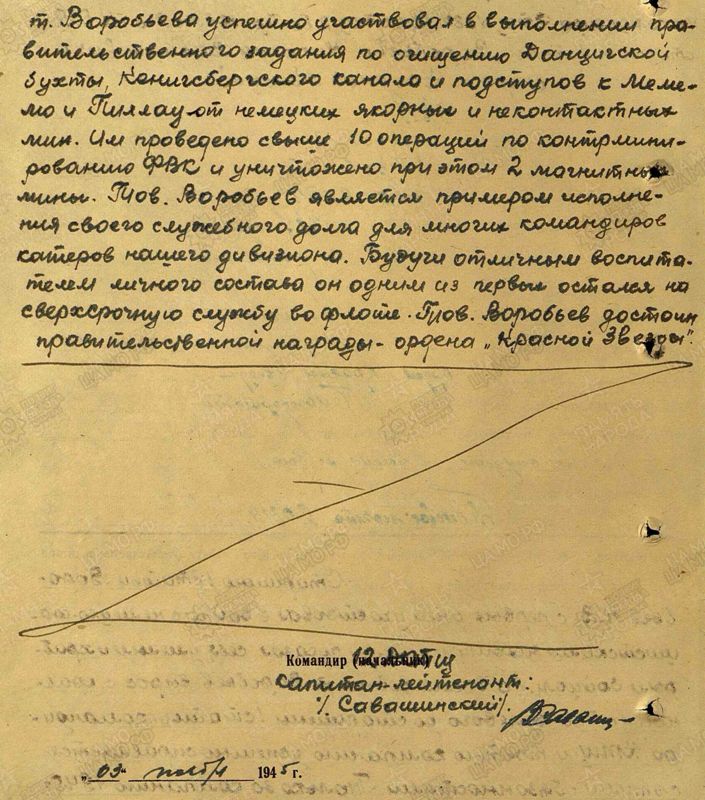 т. Воробьева успешно участвовал в выполнении пра-
вительственного задания по очищению Данцигской
бухты, Кенигсбергского канала и подступов к Меме-
лю и Пиллау от немецких якорных и неконтактных
мин. Им проведено свыше 10 операций по контрмини-
рованию ФВК и уничтожено при этом 2 магнитных
мины. Тов. Воробьев является примером исполне-
ния своего служебного долга для многих командиров
катеров нашего дивизиона. Будучи отличным воспита-
телем личного состава он одним из первых остался на
сверхсрочную службу во флоте. Тов. Воробьев достоин
правительственной награды - ордена „Красной Звезды".
Командир (начальник)
Капитан-лейтенант:
/Савашинский/.
„03" ноября 1945 г.